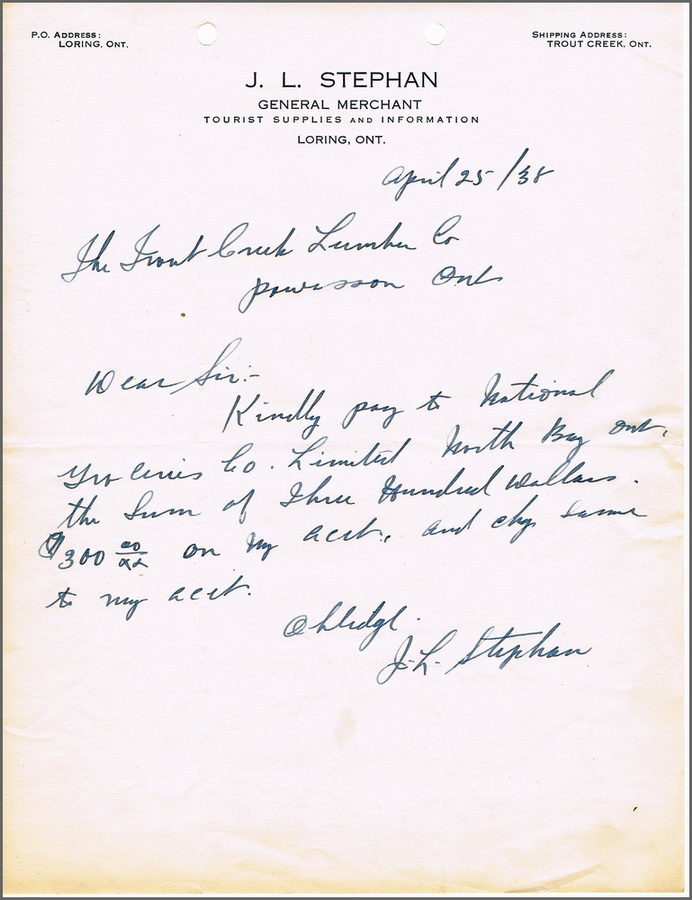 P.O. Address:
Loring, Ont.
Shipping Address:
Trout Creek, Ont.
J. L. STEPHAN
GENERAL MERCHANT
TOURIST SUPPLIES AND INFORMATION
LORING, ONT.
April 25/38
The Trout Creek Lumber Co
Powasson Ont
Dear Sir:-
Kindly pay to National
Groceries Co. Limited North Bay Ont,
the Sum of Three Hundred Dollars.
$300 00/xx on my acct., and chg same
to my acct.
Oblidge.
J.L. Stephan